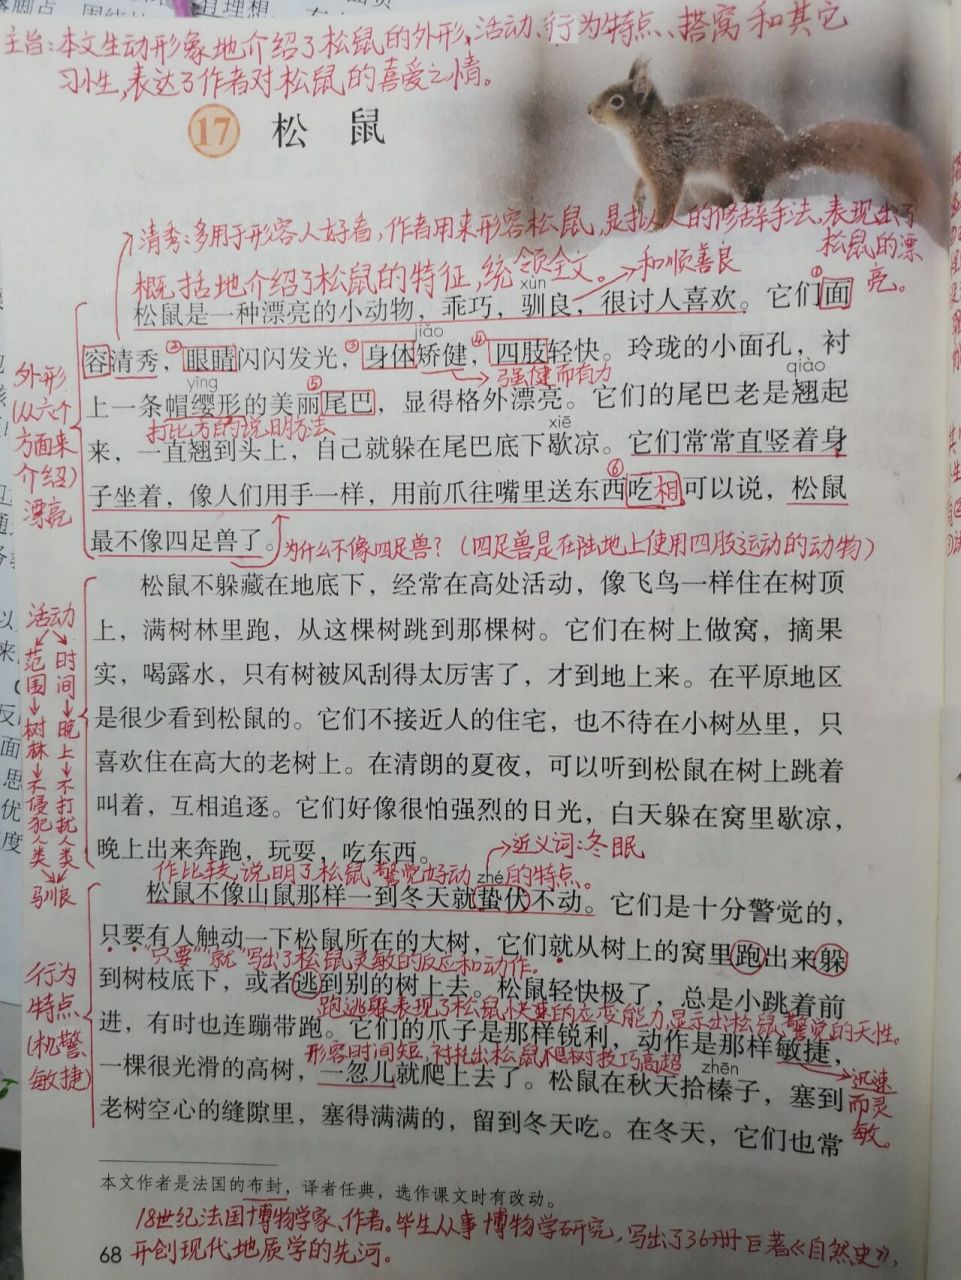 主旨:本文生动形象地介绍了松鼠的外形、活动、行为特点、搭窝和其它
习性,表达了作者对松鼠的喜爱之情。
17 松鼠
清秀:多用于形容人好看,作者用来形容松鼠,是拟人的修辞手法,表现出了
松鼠的漂
亮。
概括地介绍了松鼠的特征,统领全文。
和顺善良
xùn
松鼠是一种漂亮的小动物，乖巧，驯良，很讨人喜欢。它们①面
jiǎo
容清秀，②眼睛闪闪发光，③身体矫健，④四肢轻快。玲珑的小面孔，衬
强健而有力
yīng
qiào
上一条帽缨形的美丽⑤尾巴，显得格外漂亮。它们的尾巴老是翘起
打比方的说明方法
xiē
来，一直翘到头上，自己就躲在尾巴底下歇凉。它们常常直竖着身
子坐着，像人们用手一样，用前爪往嘴里送东西⑥吃相可以说，松鼠
最不像四足兽了。
为什么不像四足兽?(四足兽是在陆地上使用四肢运动的动物)
外形
(从六个
方面来
介绍)
漂亮
松鼠不躲藏在地底下，经常在高处活动，像飞鸟一样住在树顶
上，满树林里跑，从这棵树跳到那棵树。它们在树上做窝，摘果
实，喝露水，只有树被风刮得太厉害了，才到地上来。在平原地区
是很少看到松鼠的。它们不接近人的住宅，也不待在小树丛里，只
喜欢住在高大的老树上。在清朗的夏夜，可以听到松鼠在树上跳着
叫着，互相追逐。它们好像很怕强烈的日光，白天躲在窝里歇凉，
晚上出来奔跑，玩耍，吃东西。
活动
范围→树林→不侵犯人类
时间→晚上→不打扰人类
驯良
近义词:冬眠
作比较,说明了松鼠警觉好动的特点。
zhé
松鼠不像山鼠那样一到冬天就蛰伏不动。它们是十分警觉的，
只要有人触动一下松鼠所在的大树，它们就从树上的窝里跑出来躲
"只要""就"写出了松鼠灵敏的反应和动作。
到树枝底下，或者逃到别的树上去。松鼠轻快极了，总是小跳着前
跑逃躲表现了松鼠快速的应变能力,显示出松鼠警觉的天性。
进，有时也连蹦带跑。它们的爪子是那样锐利，动作是那样敏捷，
形容时间短,衬托出松鼠爬树技巧高超
zhēn
一棵很光滑的高树，一忽儿就爬上去了。松鼠在秋天拾榛子，塞到
迅速
而灵
敏。
老树空心的缝隙里，塞得满满的，留到冬天吃。在冬天，它们也常
行为
特点
(机警、
敏捷)
本文作者是法国的布封，译者任典，选作课文时有改动。
18世纪法国博物学家、作者。毕生从事博物学研究,写出了36册巨著《自然史》,
开创现代地质学的先河。
68